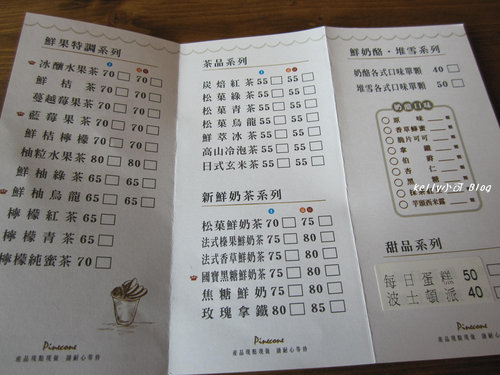 鮮果特調系列
冰釀水果茶 70 70
鮮桔茶 70 70
蔓越莓果茶 70 70
藍莓果茶 70 70
鮮桔檸檬 70 70
柚粒水果茶 80 80
鮮柚綠茶 65
鮮柚烏龍 65
檸檬紅茶 65
檸檬青茶 65
檸檬純蜜茶 70
Pinecone
產品現點現做 請耐心等待
茶品系列
炭焙紅茶 55 55
松菓綠茶 55 55
松菓青茶 55 55
松菓烏龍 55 55
鮮萃冰茶 55 55
高山冷泡茶 55 55
日式玄米茶 55 55
新鮮奶茶系列
松菓鮮奶茶 70 75
法式榛果鮮奶茶 75 80
法式香草鮮奶茶 75 80
國寶黑糖鮮奶茶 75 80
焦糖鮮奶 75 80
玫瑰拿鐵 80 85
Pinecone
產品現點現做 請耐心等待
鮮奶酪·堆雪系列
奶酪各式口味單顆 40
堆雪各式口味單顆 50
奶酪口味
原味
香草蜂蜜
脆片可可
拿鐵
伯爵
杏仁
黑糖
芋頭西米露
kelly小可 Blog
甜品系列
每日蛋糕 50
波士頓派 40
Pinecone
產品現點現做 請耐心等待